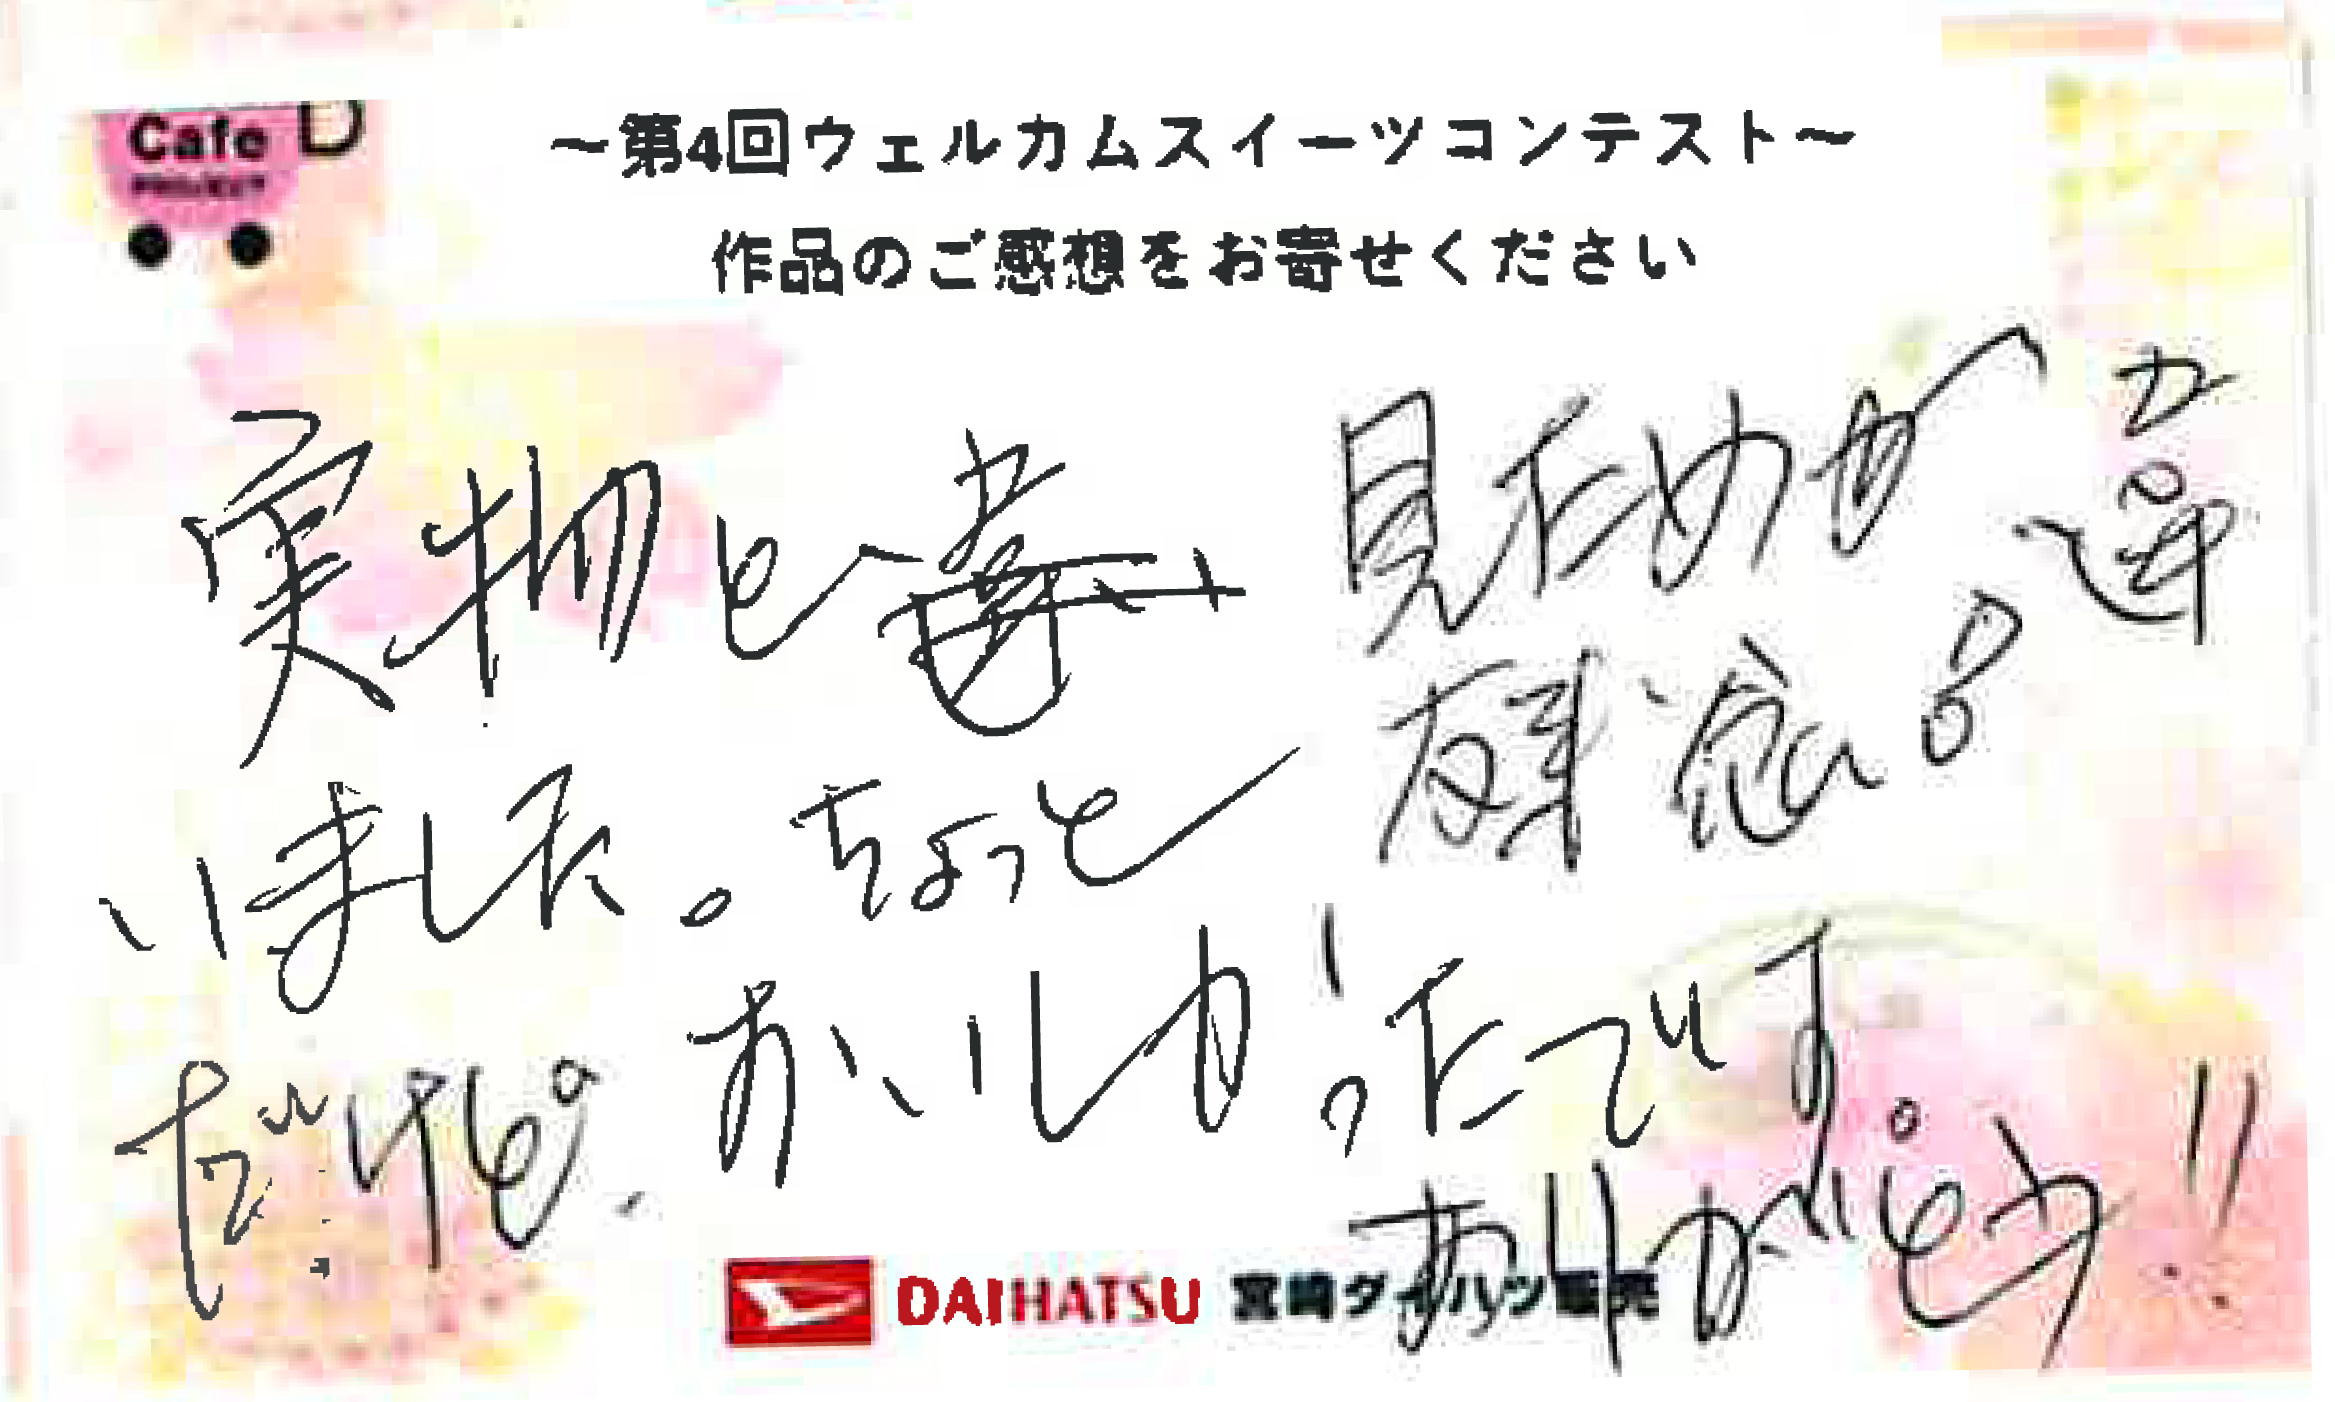 Cafe D
PROJECT
～第4回ウェルカムスイーツコンテスト～
作品のご感想をお寄せください
実物と 見ためが違
いました。ちょっと残念。
だけど、おいしかったです
ありがとう!!
DAIHATSU 宮崎ダイハツ販売